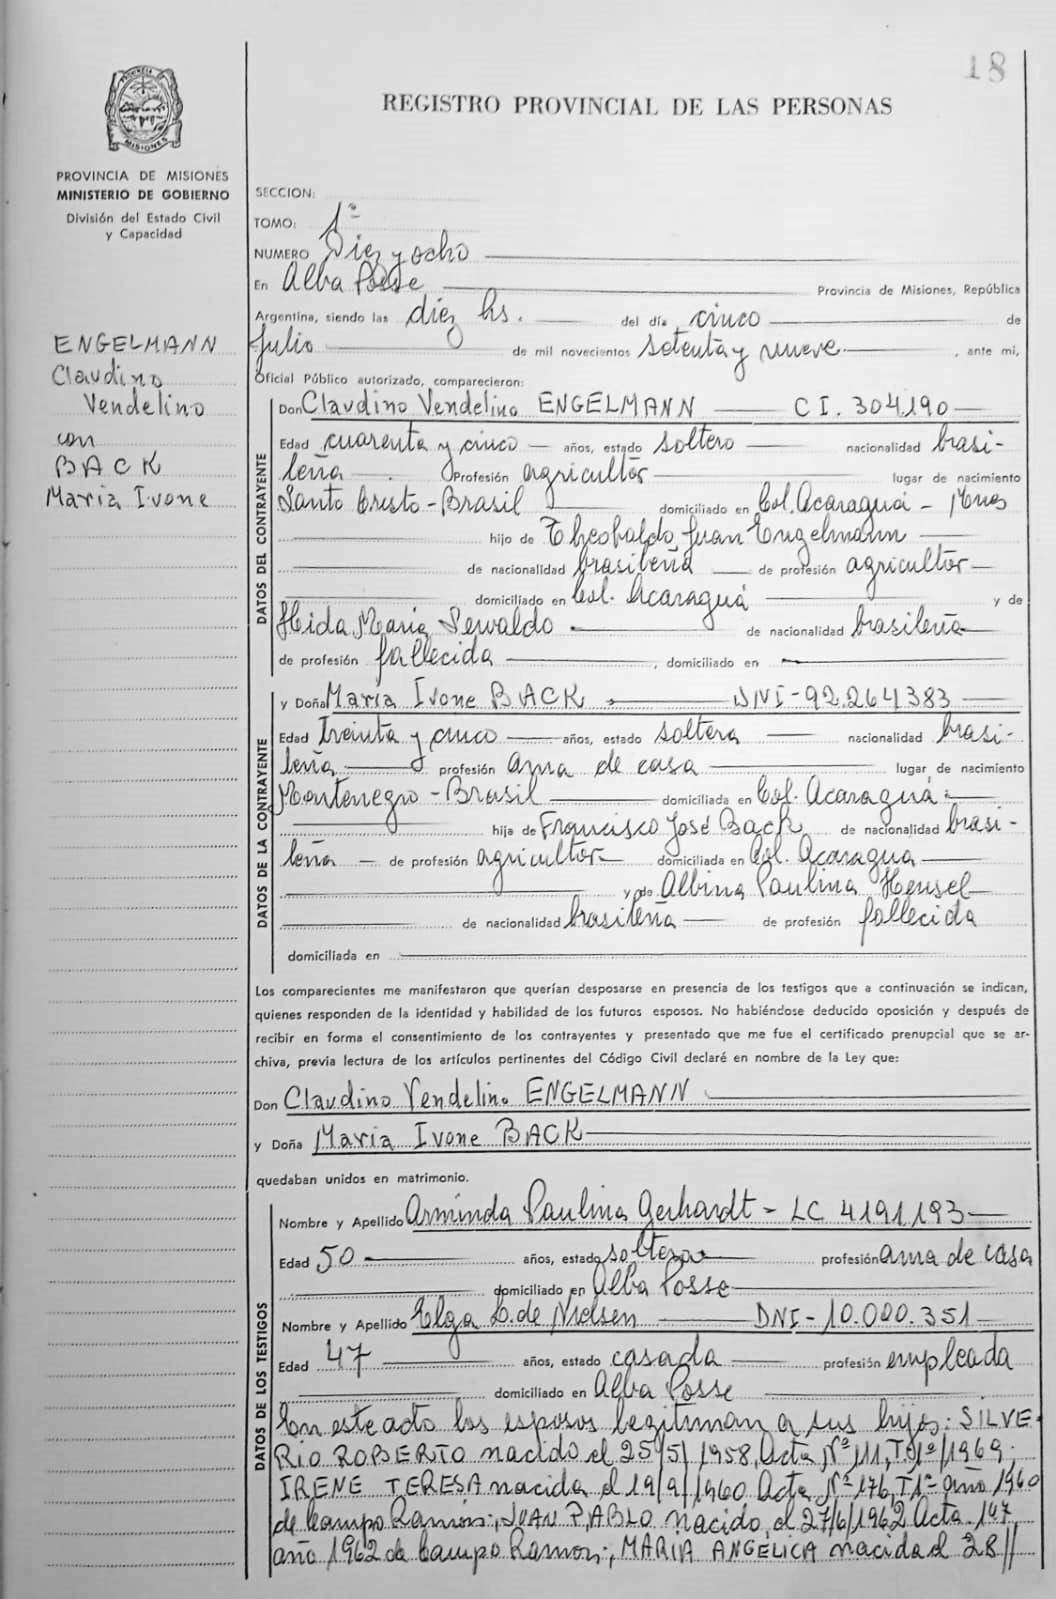 18
REGISTRO PROVINCIAL DE LAS PERSONAS
PROVINCIA DE MISIONES
MINISTERIO DE GOBIERNO
División del Estado Civil
y Capacidad
ENGELMANN
Claudino
Vendelino
con
BACK
Maria Ivone
SECCION:
TOMO: 1º
NUMERO Diez y ocho
En Alba Posse Provincia de Misiones, República
Argentina, siendo las diez hs. del día cinco de
Julio de mil novecientos setenta y nueve, ante mi,
Oficial Público autorizado, comparecieron:
DATOS DEL CONTRAYENTE
Don Claudino Vendelino ENGELMANN CI. 304.190
Edad cuarenta y cinco años, estado soltero nacionalidad brasi-
leña Profesión agricultor lugar de nacimiento
Santo Cristo - Brasil domiciliado en Col. Acaraguá - Mnes
hijo de Theobaldo Juan Engelmann
de nacionalidad brasileña de profesión agricultor
domiciliado en Col. Acaraguá y de
Hida Maria Sewaldo de nacionalidad brasileña
de profesión fallecida, domiciliado en
DATOS DE LA CONTRAYENTE
y Doña Maria Ivone BACK DNI - 92.264.383
Edad Treinta y cinco años, estado soltera nacionalidad brasi-
leña profesión ama de casa lugar de nacimiento
Montenegro - Brasil domiciliada en Col. Acaraguá
hija de Francisco José Back de nacionalidad brasi-
leña de profesión agricultor domiciliada en Col. Acaragua
y de Albina Paulina Hensel
de nacionalidad brasileña de profesión fallecida
domiciliada en
Los comparecientes me manifestaron que querían desposarse en presencia de los testigos que a continuación se indican,
quienes responden de la identidad y habilidad de los futuros esposos. No habiéndose deducido oposición y después de
recibir en forma el consentimiento de los contrayentes y presentado que me fue el certificado prenupcial que se ar-
chiva, previa lectura de los artículos pertinentes del Código Civil declaré en nombre de la Ley que:
Don Claudino Vendelino ENGELMANN
y Doña Maria Ivone BACK
quedaban unidos en matrimonio.
DATOS DE LOS TESTIGOS
Nombre y Apellido Arminda Paulina Gerhardt - LC 4191193
Edad 50 años, estado soltera profesión ama de casa
domiciliado en Alba Posse
Nombre y Apellido Elga de Nielsen DNI - 10.000.351
Edad 47 años, estado casada profesión empleada
domiciliado en Alba Posse
En este acto los esposos legitiman a sus hijos: SILVE-
RIO ROBERTO nacido el 25/5/1958, Acta Nº 111, Tº1º/1969;
IRENE TERESA nacida el 19/9/1960 Acta Nº 176, T1º año 1960
de Campo Ramon; JUAN PABLO nacido el 27/6/1962 Acta 147
año 1962 de Campo Ramon; MARIA ANGÉLICA nacida el 28//